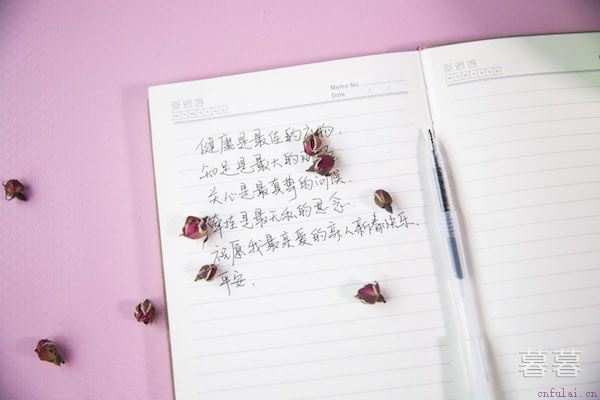 Memo No.
Date / /
健康是最佳的礼物.
知足是最大的
关心是最真挚的问候.
牵挂是最无私的思念.
祝愿我最亲爱的亲人新春快乐.
平安.
暮暮
cnfulai.cn